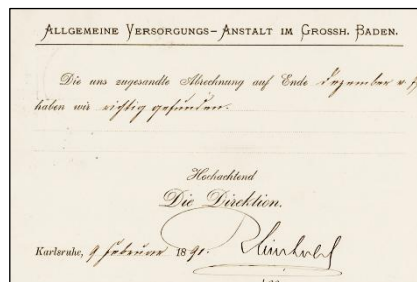 ALLGEMEINE VERSORGUNGS-ANSTALT IM GROSSH. BADEN.
Die uns zugesandte Abrechnung auf Ende Dezember v. J.
haben wir richtig gefunden.
Hochachtend
Die Direktion.
Karlsruhe, 9 Februar 1891.